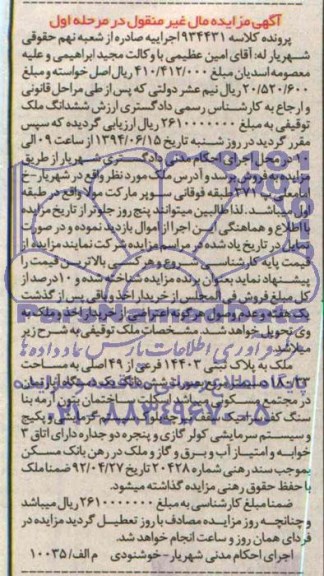 آگهی مزایده مال غیر منقول در مرحله اول
پرونده کلاسه ۹۳۴۴۳۱ اجراییه صادره از شعبه نهم حقوقی
شهریار له: آقای امین عظیمی با وکالت مجید ابراهیمی و علیه
معصومه اسدیان مبلغ ۴۱۰/۴۱۲/۰۰۰ ریال اصل خواسته و مبلغ
۲۰/۵۲۰/۶۰۰ ریال نیم عشر دولتی که پس از طی مراحل قانونی
و ارجاع به کارشناس رسمی دادگستری ارزش ششدانگ ملک
توقیفی به مبلغ ۲۶۱۰۰۰۰۰۰۰ ریال ارزیابی گردیده که سپس
مقرر گردید در روز شنبه تاریخ ۱۳۹۴/۰۶/۱۵ از ساعت ۰۹ الی
۱۰ در محل اجرای احکام مدنی دادگستری شهریار از طریق
مزایده به فروش برسد و آدرس ملک مورد نظر واقع در شهریار-خ
پلاک ۳۷۱ طبقه فوقانی سوپر مارکت مولا واقع در طبقه
اول میباشد. لذا طالبین میتوانند پنج روز جلوتر از تاریخ مزایده
با اطلاع و هماهنگی این اجرا از اموال بازدید نموده و در صورت
تمایل در تاریخ یاد شده در مراسم مزایده شرکت نمایند مزایده از
قیمت پایه کارشناسی شروع و هر کسی بالاترین قیمت را
پیشنهاد نماید بعنوان برنده مزایده شناخته شده و ۱۰ درصد از
کل مبلغ فروش فی المجلس از خریدار اخذ و باقی پس از گذشت
یک هفته و عدم وصول هرگونه اعتراضی از خریدار اخذ و ملک به
وی تحویل خواهد شد. مشخصات ملک توقیفی به شرح زیر
میباشد.
ملک به پلاک ثبتی ۱۴۴۰۳ فرعی از ۴۹ اصلی به مساحت
در مجتمع مسکونی میباشد اسکلت ساختمان بتون آرمه بنا
سنگ کف سرامیک سیستم گرمایشی پکیج
و سیستم سرمایشی کولر گازی و پنجره دو جداره دارای اتاق ۳
خوابه و امتیاز آب و برق و گاز و ملک در رهن بانک مسکن
بموجب سند رهنی شماره ۲۰۴۲۸ تاریخ ۹۲/۰۴/۲۷ ضمنا ملک
با حفظ حقوق رهنی مزایده گذاشته میشود.
ضمنا مبلغ کارشناسی به مبلغ ۲۶۱۰۰۰۰۰۰۰ ریال میباشد
و چنانچه روز مزایده مصادف با روز تعطیل گردید مزایده در
فردای همان روز و ساعت انجام خواهد شد.
اجرای احکام مدنی شهریار- خوشنودی م الف/ ۱۰۰۳۵
فرآوری اطلاعات پارس نماد داده ها
۰۲۱-۸۸۳۴۹۶۷۰-۵